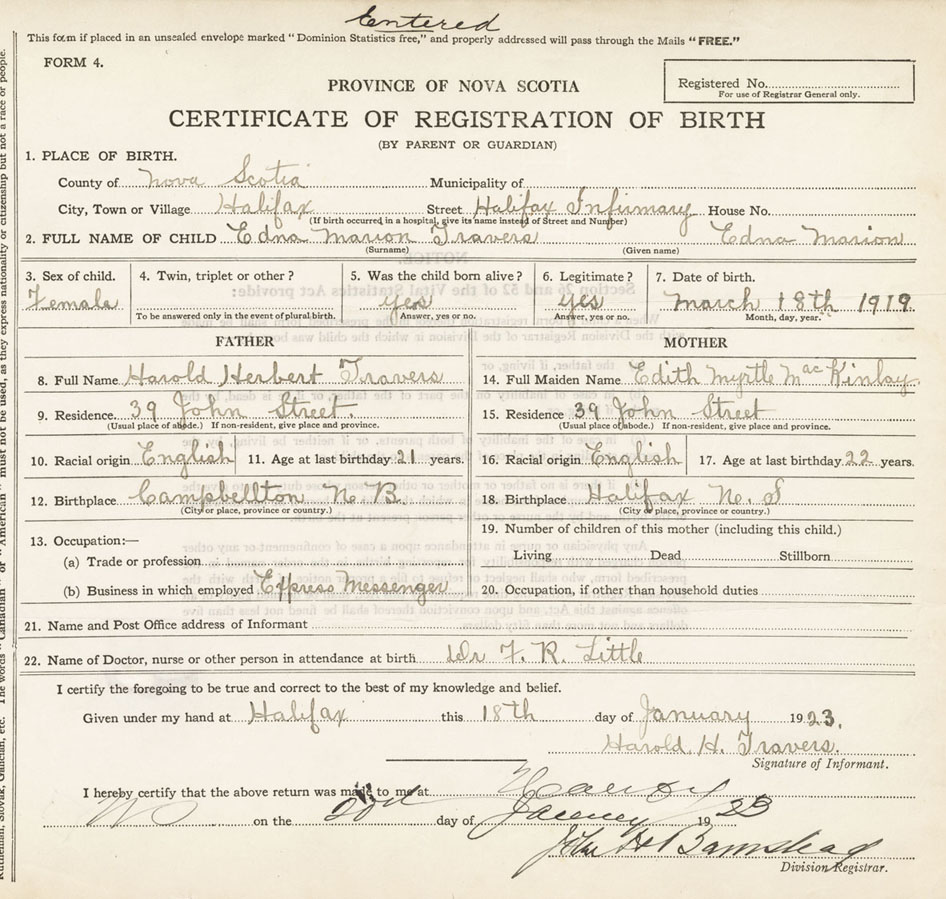 Entered
This form if placed in an unsealed envelope marked "Dominion Statistics free," and properly addressed will pass through the Mails "FREE."
FORM 4.
Registered No.
For use of Registrar General only.
PROVINCE OF NOVA SCOTIA
CERTIFICATE OF REGISTRATION OF BIRTH
(BY PARENT OR GUARDIAN)
1. PLACE OF BIRTH.
County of Nova Scotia Municipality of
City, Town or Village Halifax Street Halifax Infirmary House No.
(If birth occurred in a hospital, give its name instead of Street and Number)
2. FULL NAME OF CHILD Edna Marion Travers Edna Marion
(Surname) (Given name)
3. Sex of child. 4. Twin, triplet or other? 5. Was the child born alive? 6. Legitimate? 7. Date of birth.
Female yes yes March 18th 1919
To be answered only in the event of plural birth. Answer, yes or no. Answer, yes or no. Month, day, year.
FATHER
8. Full Name Harold Herbert Travers
9. Residence 39 John Street.
(Usual place of abode.) If non-resident, give place and province.
10. Racial origin English 11. Age at last birthday 21 years.
12. Birthplace Campbellton N. B.
(City or place, province or country.)
13. Occupation:—
(a) Trade or profession
(b) Business in which employed Express Messenger
MOTHER
14. Full Maiden Name Edith Myrtle MacKinlay
15. Residence 39 John Street
(Usual place of abode.) If non-resident, give place and province.
16. Racial origin English 17. Age at last birthday 22 years.
18. Birthplace Halifax N. S
(City or place, province or country.)
19. Number of children of this mother (including this child.)
Living Dead Stillborn
20. Occupation, if other than household duties
21. Name and Post Office address of Informant
22. Name of Doctor, nurse or other person in attendance at birth Dr F. R. Little
I certify the foregoing to be true and correct to the best of my knowledge and belief.
Given under my hand at Halifax this 18th day of January 1923.
Harold H. Travers.
Signature of Informant.
I hereby certify that the above return was made to me at
on the day of 1923
John H Barnstead
Division Registrar.